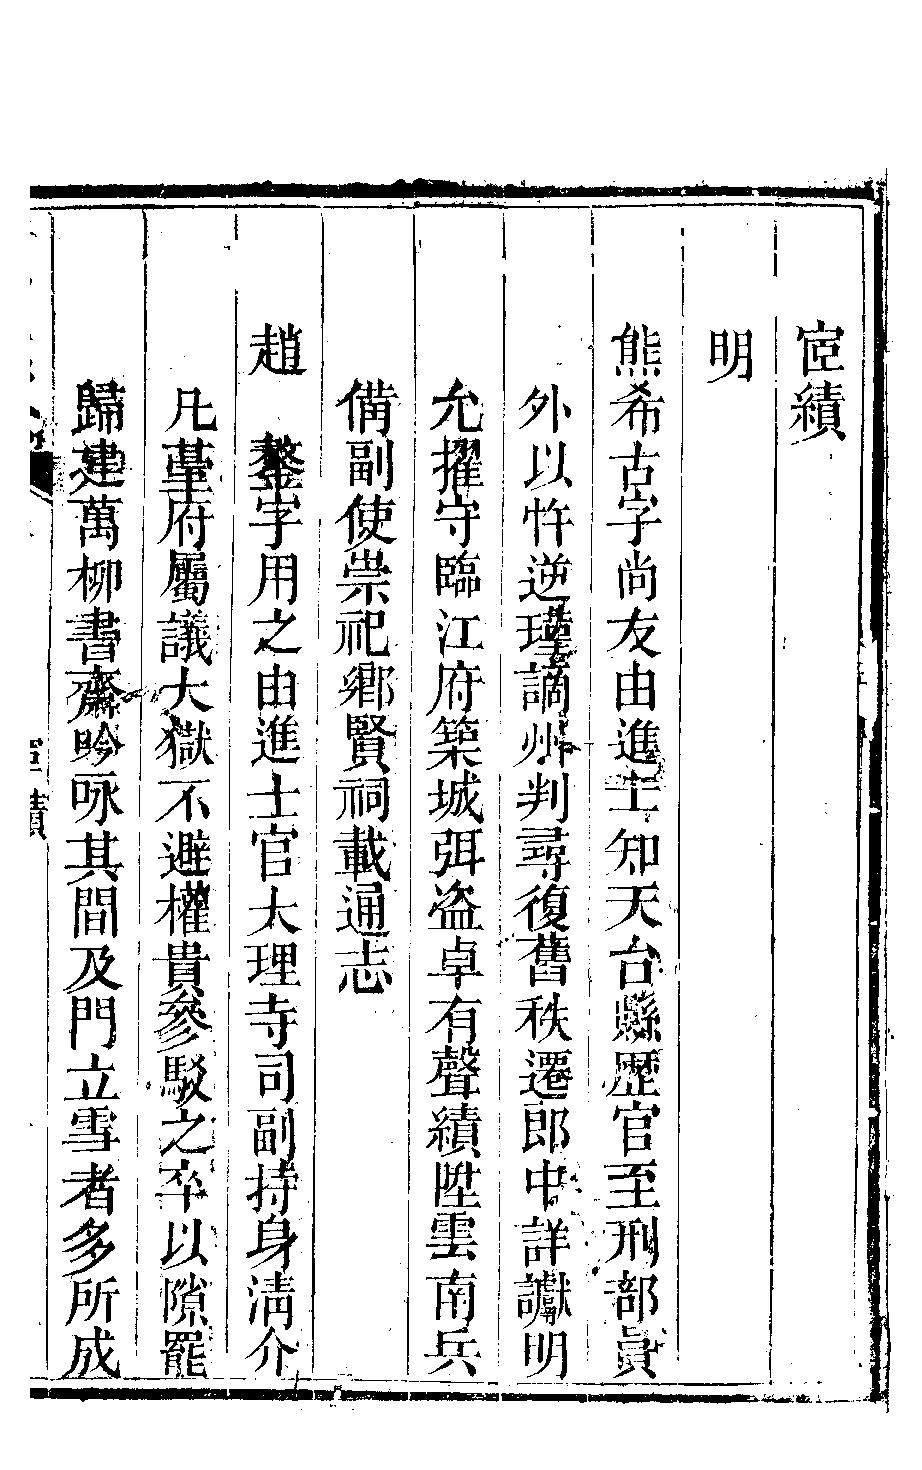 宦績
明
熊希古字尚友由進士知天台縣歷官至刑部員
外以忤逆瑾謫州判尋復舊秩遷郎中詳讞明
允擢守臨江府築城弭盗卓有聲績陞雲南兵
備副使崇祀鄉賢祠載通志
趙　鏊字用之由進士官大理寺司副持身淸介
凡堇府屬議大獄不避權貴參駁之卒以隙罷
歸建萬柳書齋吟咏其間及門立雪者多所成
宦績